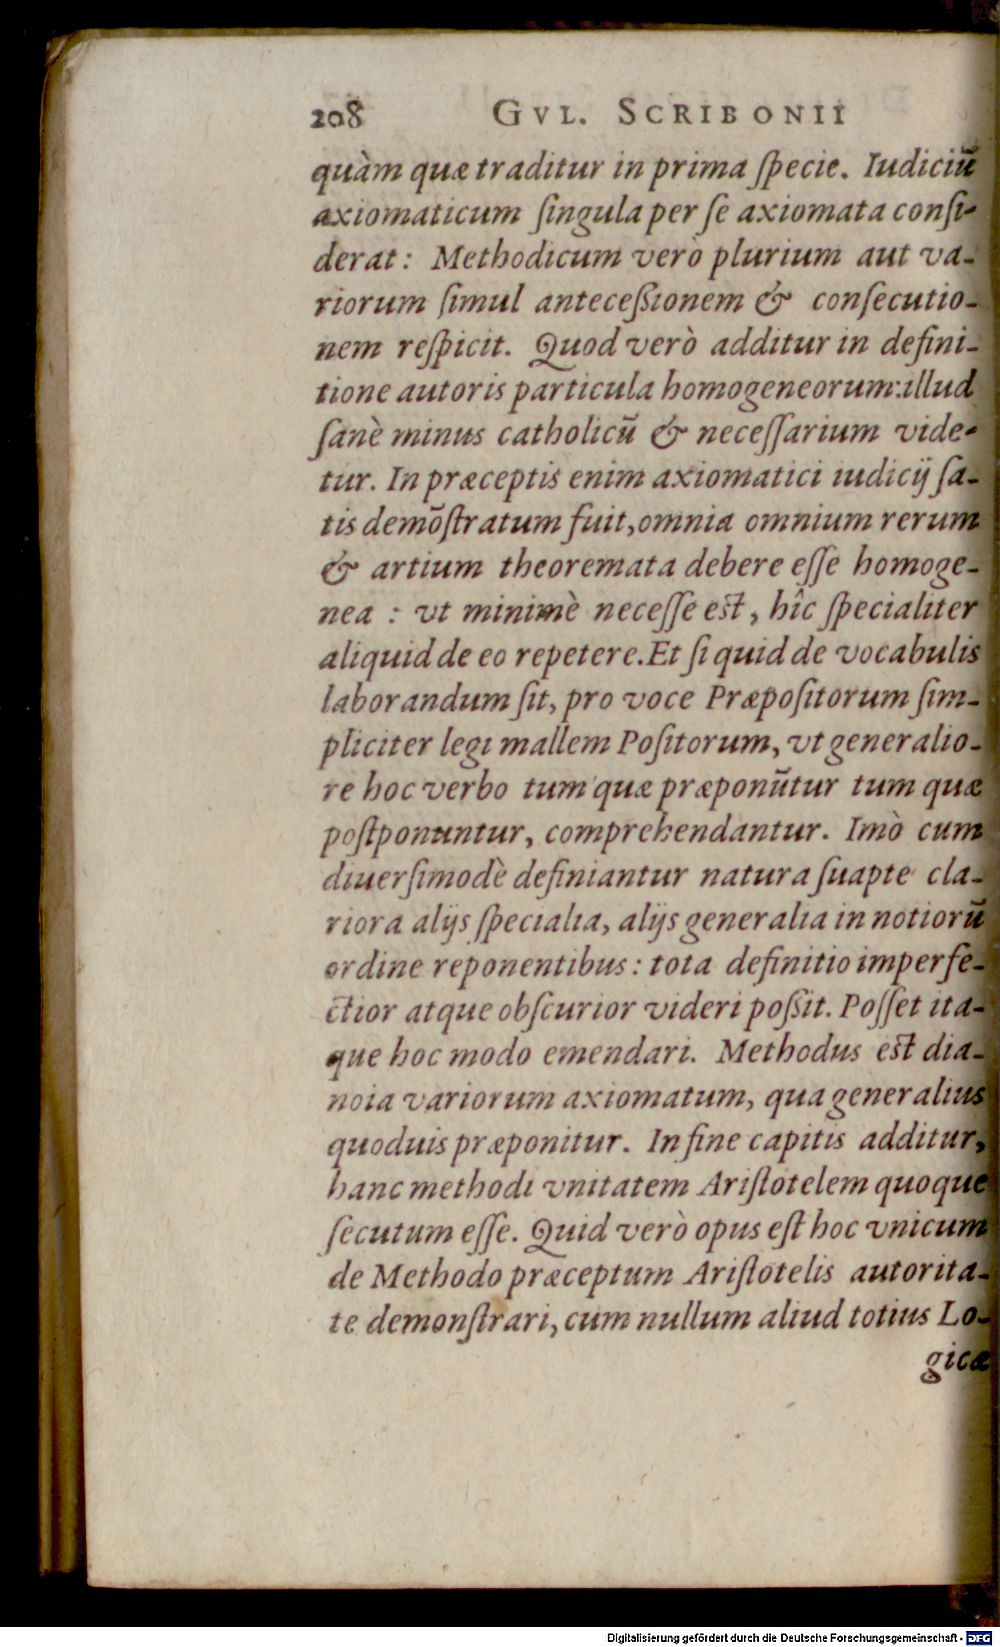 208 GVL. SCRIBONII
quàm quæ traditur in prima ſpecie. Iudiciũ
axiomaticum ſingula per ſe axiomata conſi-
derat: Methodicum verò plurium aut va-
riorum ſimul anteceſsionem & conſecutio-
nem reſpicit. Quod verò additur in defini-
tione autoris particula homogeneorum: illud
ſanè minus catholicũ & neceſſarium vide-
tur. In præceptis enim axiomatici iudicij ſa-
tis demõſtratum fuit, omnia omnium rerum
& artium theoremata debere eſſe homoge-
nea : vt minimè neceſſe est, hîc ſpecialiter
aliquid de eo repetere. Et ſi quid de vocabulis
laborandum ſit, pro voce Præpoſitorum ſim-
pliciter legi mallem Poſitorum, vt generalio-
re hoc verbo tum quæ præponũtur tum quæ
poſtponuntur, comprehendantur. Imò cum
diuerſimodè definiantur natura ſuapte cla-
riora alijs ſpecialia, alijs generalia in notiorũ
ordine reponentibus: tota definitio imperfe-
ctior atque obſcurior videri poſsit. Poſſet ita-
que hoc modo emendari. Methodus est dia-
noia variorum axiomatum, qua generalius
quoduis præponitur. In fine capitis additur,
hanc methodi vnitatem Ariſtotelem quoque
ſecutum eſſe. Quid verò opus eſt hoc vnicum
de Methodo præceptum Ariſtotelis autorita-
te demonſtrari, cum nullum aliud totius Lo-
gicæ
Digitalisierung gefördert durch die Deutsche Forschungsgemeinschaft - DFG